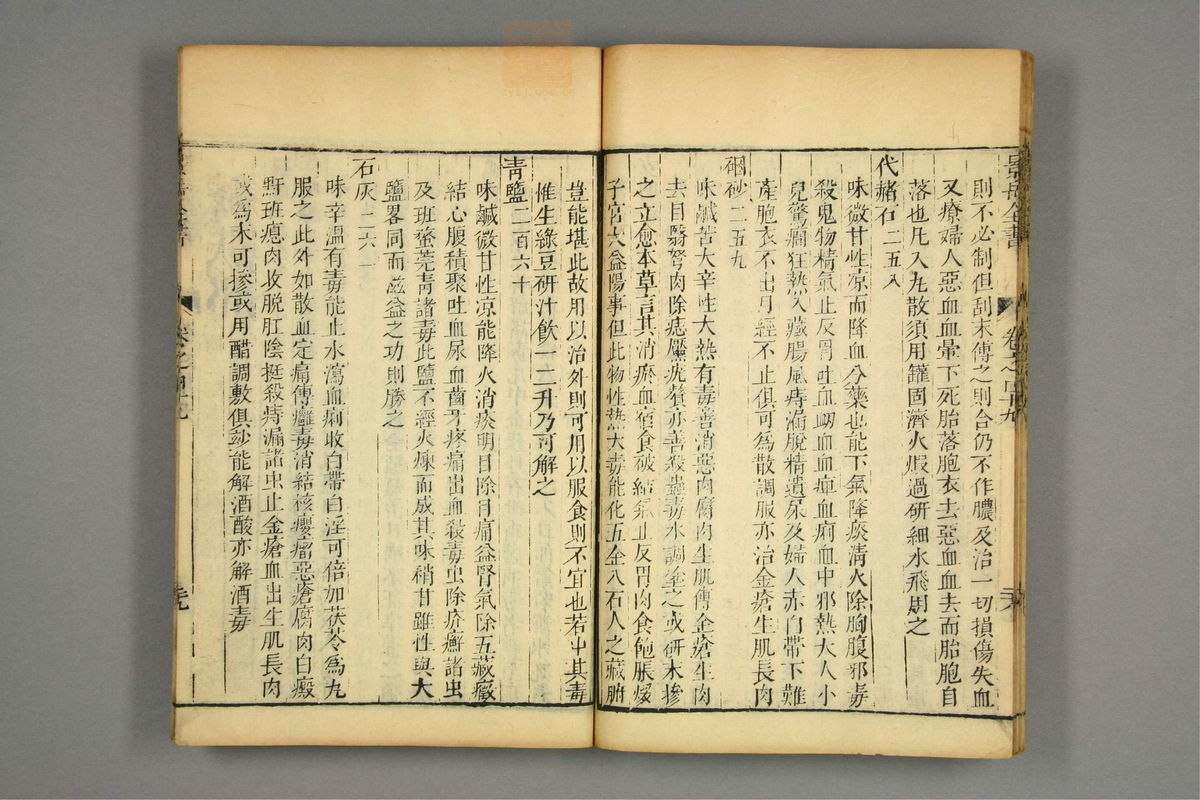 景岳全書
卷之四十九
則不必制但刮末傅之則合仍不作膿及治一切損傷失血
又療婦人惡血血暈下死胎落胞衣去惡血血去而胎胞自
落也凡入丸散須用罐固濟火煆過研細水飛用之
代赭石二五八
味微甘性凉而降血分藥也能下氣降痰清火除胸腹邪毒
殺鬼物精氣止反胃吐血衂血血崩血痢血中邪熱大人小
兒驚癎狂熱入藏腸風痔漏脫精遺尿及婦人赤白帶下難
產胞衣不出月經不止俱可為散調服亦治金瘡生肌長肉
硇砂二五九
味鹹苦大辛性大熱有毒善消惡肉腐肉生肌傅金瘡生肉
去目翳弩肉除痣黶疣贅亦善殺蟲毒水調塗之或研末摻
之立愈本草言其消瘀血宿食破結氣止反胃肉食飽脹煖
子宮大益陽事但此物性熱大毒能化五金八石人之藏腑
豈能堪此故用以治外則可用以服食則不宜也若中其毒
惟生綠豆研汁飲一二升乃可解之
青鹽二百六十
味鹹微甘性凉能降火消痰明目除目痛益腎氣除五藏癥
結心腹積聚吐血尿血齒牙疼痛出血殺毒虫除疥癬諸虫
及班蝥芫青諸毒此鹽不經火煉而成其味稍甘雖性與大
鹽畧同而滋益之功則勝之
石灰二六一
味辛溫有毒能止水瀉血痢收白帶白淫可倍加茯苓為丸
服之此外如散血定痛傅癰毒消結核癭瘤惡瘡腐肉白癜
䵟班瘜肉收脫肛陰挺殺痔漏諸虫止金瘡血出生肌長肉
或為末可摻或用醋調敷俱妙能解酒酸亦解酒毒